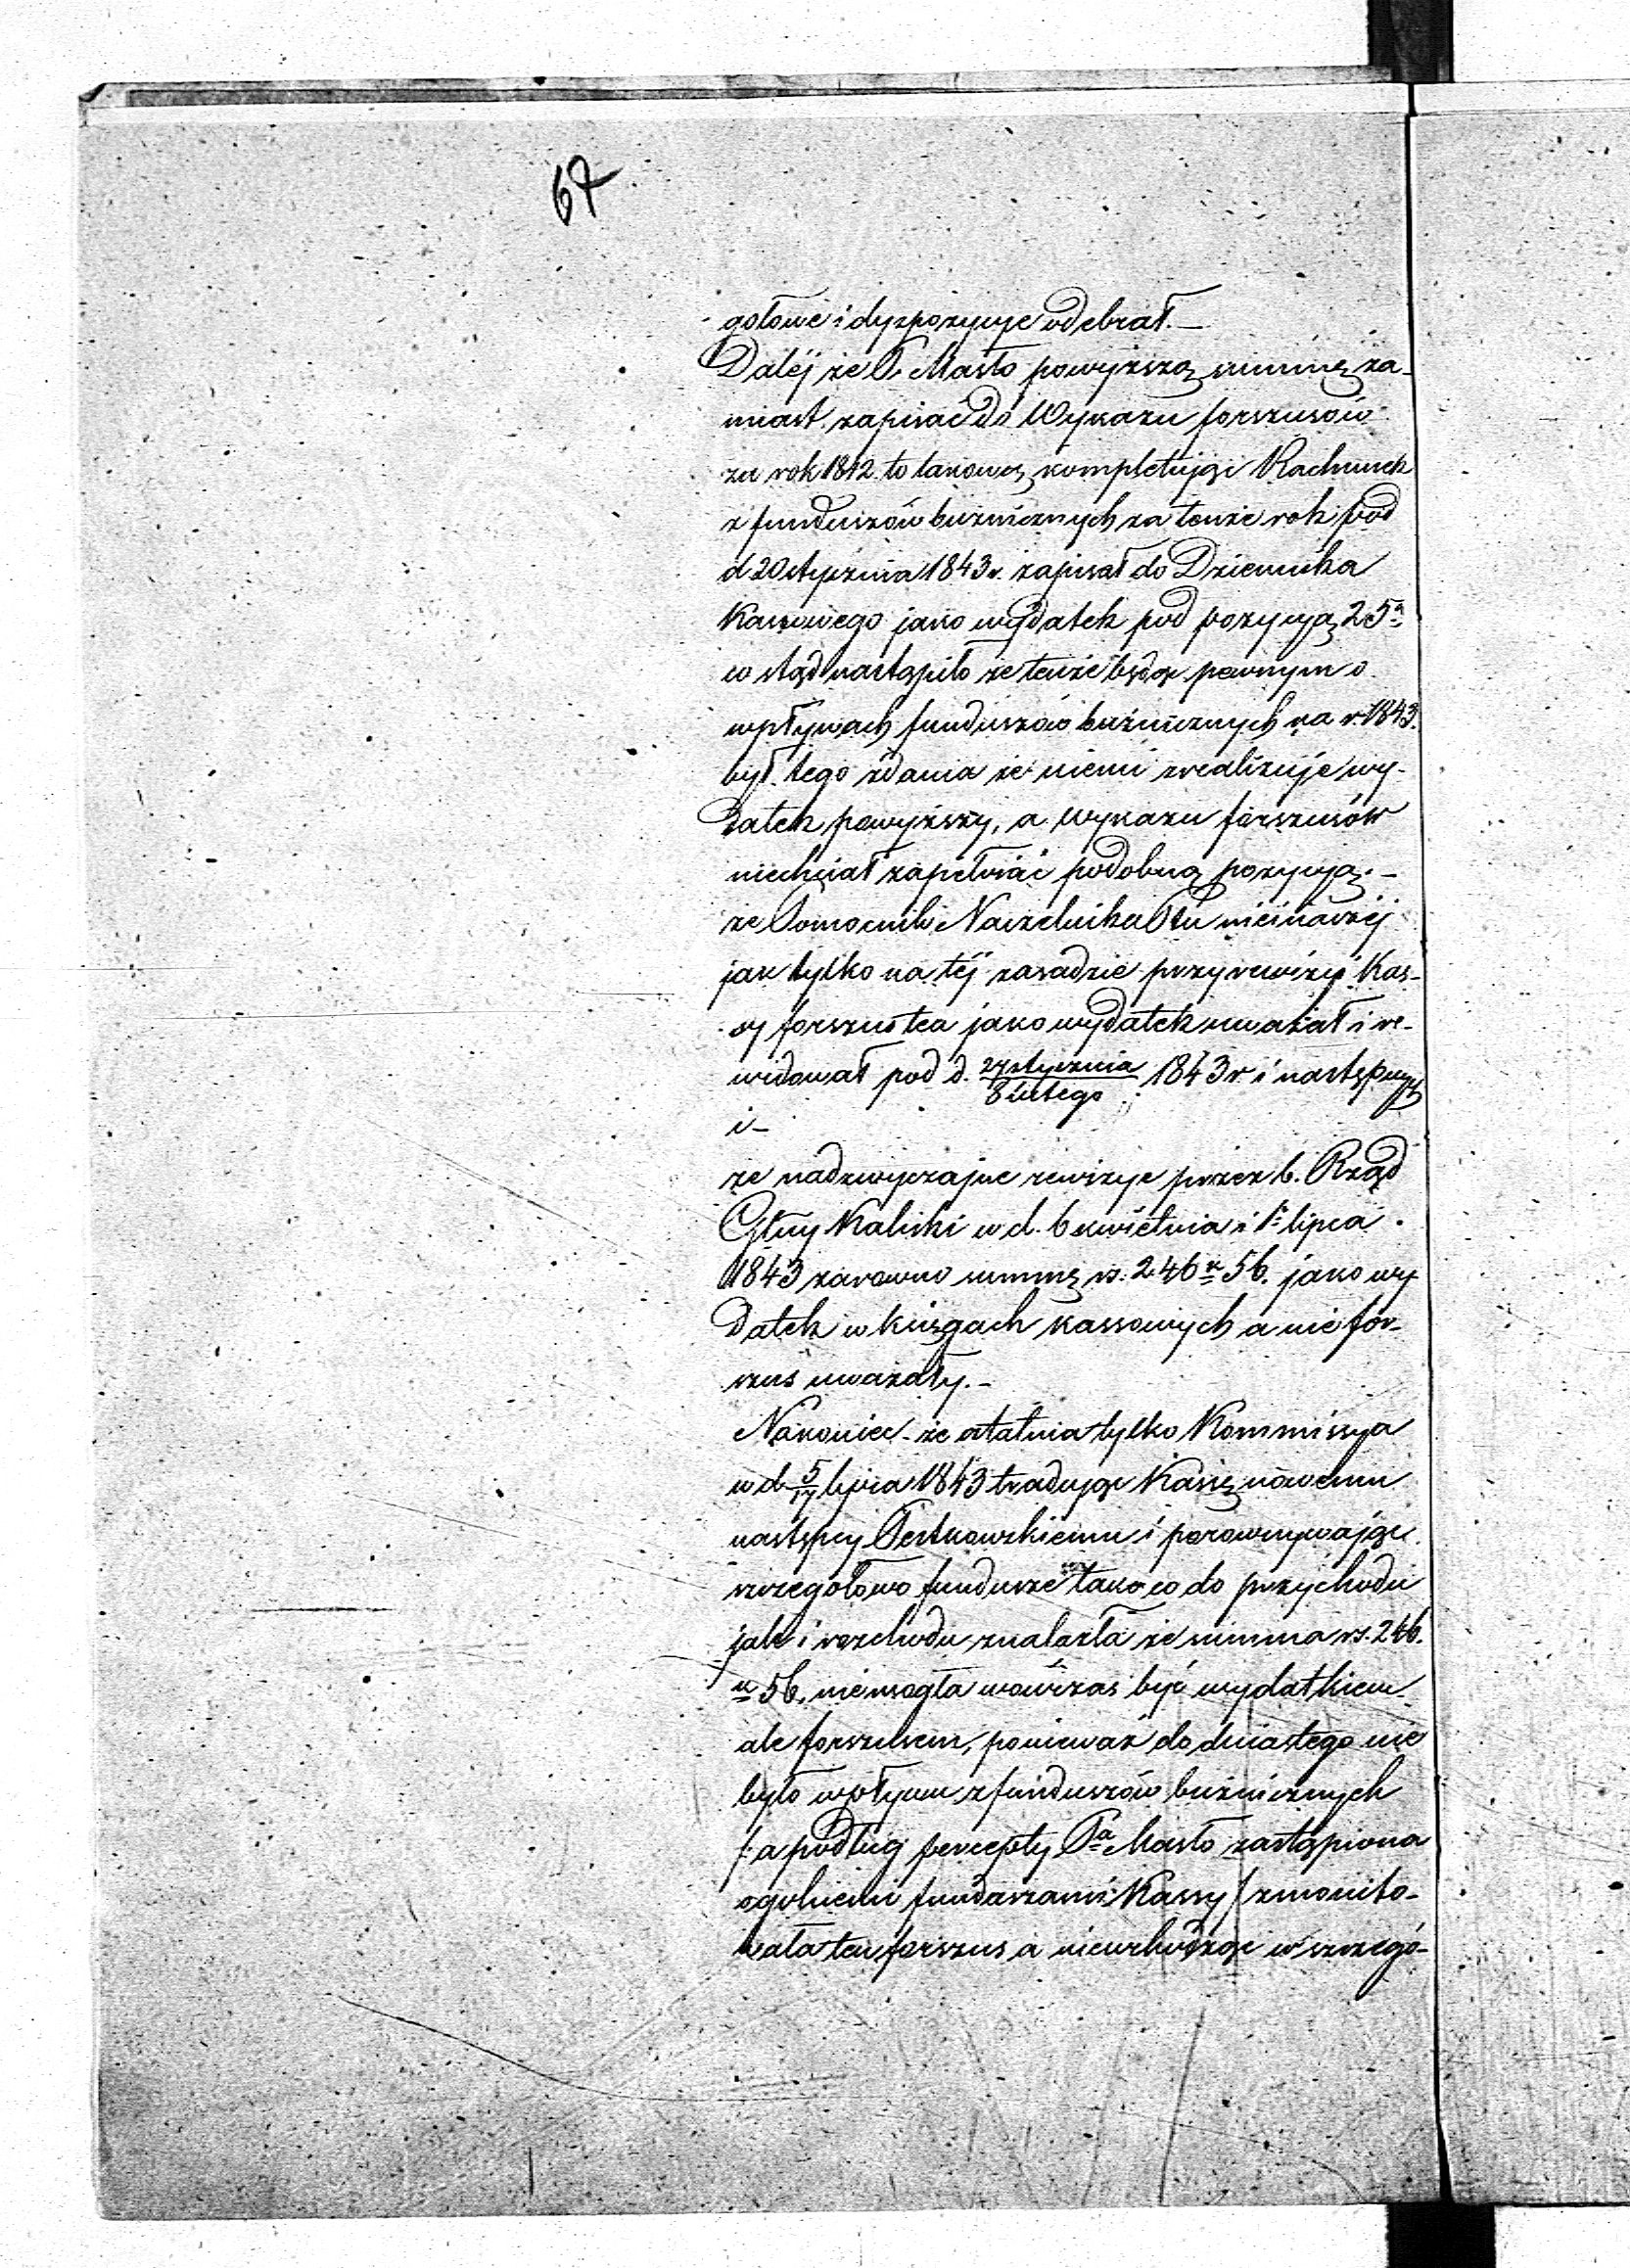 67
gotowe i dyspozycye odebrał.—
Daléj że P. Masło powyższą summę za-
miast zapisać do Wykazu forszusów
za rok 1842 to takową kompletując Rachunek
z funduszów buźnicznych za tenże rok pod
d 20 stycznia 1843 r. zapisał do Dziennika
Kassowego jako wydatek pod pozycyą 25ą
w stąd nastąpiło że tenże będąc pewnym o
wpływach funduszów buźnicznych na r 1843.
był tego zdania że niemi zrealizuje wy-
datek powyższy, a wykazu forszusów
niechciał zapełniać podobną pozycyą.—
że Pomocnik Naczelnika Ptu nieinaczéj
jak tylko na téj zasadzie przy rewizyi Kas-
sy forszus ten jako wydatek uważał i re-
widował pod d. 27 stycznia / 8 lutego 1843 r i następny
i—
że nadzwyczajne rewizye przez b. Rząd
Gbny Kaliski w d. 6 kwietnia i 1o lipca
1843 zarówno summę rs. 246 k 56. jako wy
datek w księgach kassowych a nie for-
szus uważały.—
Nakoniec- że ostatnia tylko Kommissya
w d. 5/17 lipca 1843 tradując Kassę nowemu
następcy Pertkowskiemu i porównywając
szczegółowo fundusze tak co do przychodu
jak i rozchodu znalazła że summa rs. 246.
k 56. niemogła wówczas być wydatkiem
ale forszusem, ponieważ do dnia tego nie
było wpływu z funduszów buźnicznych
/: a podług percepty Pa Masło zastąpiona
ogólnemi funduszami Kassy / zmonito-
wała ten forszus a niewchodząc w szczegó-